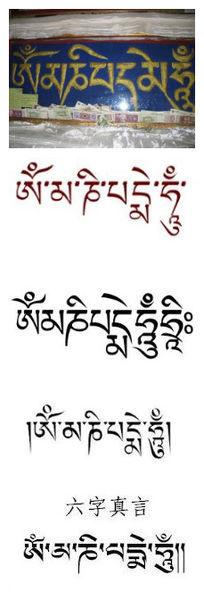 ཨོཾ་མ་ཎི་པདྨེ་ཧཱུྃ
ཨོཾ་མ་ཎི་པདྨེ་ཧཱུྃ
ཨོཾམཎིཔདྨེཧཱུྃཧྲཱིཿ
།ཨོཾ་མ་ཎི་པདྨེ་ཧཱུྃ།
六字真言
ཨོཾ་མ་ཎི་པདྨེ་ཧཱུྃ༎